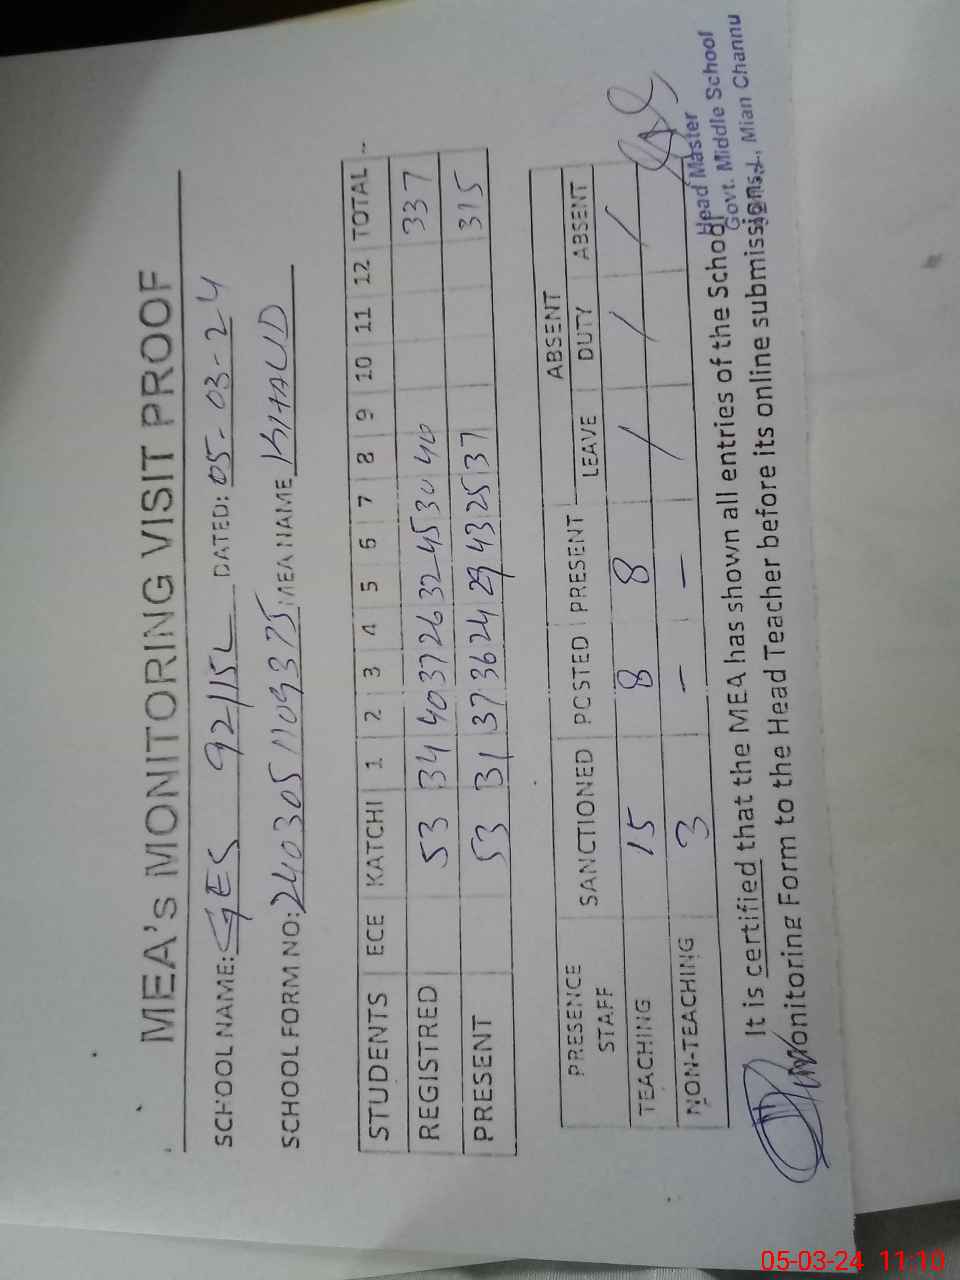 MEA's MONITORING VISIT PROOF
SCHOOL NAME: GES 92/15L DATED: 05-03-24
SCHOOL FORM NO: 2403051109375 MEA NAME KHALID
STUDENTS ECE KATCHI 1 2 3 4 5 6 7 8 9 10 11 12 TOTAL
REGISTRED 53 34 40 37 26 32 45 30 40 337
PRESENT 53 31 37 36 24 29 43 25 37 315
PRESENCE STAFF SANCTIONED POSTED PRESENT ABSENT
LEAVE DUTY ABSENT
TEACHING 15 8 8 / / /
NON-TEACHING 3 - -
It is certified that the MEA has shown all entries of the School
Monitoring Form to the Head Teacher before its online submissions.
Head Master
Govt. Middle School
Mian Channu
05-03-24 11:10